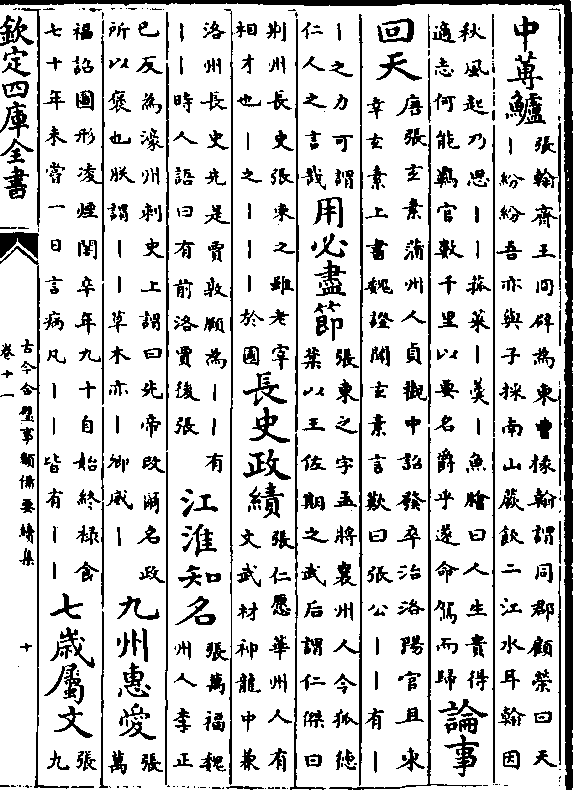 中蓴鱸 張翰齊王冏辟為東曹掾翰謂同郡顧榮曰天
丨紛紛吾亦與子採南山蕨飲二江水耳翰因
秋風起乃思丨丨菰菜丨羮丨魚膾曰人生貴得
適志何能羈官數千里以要名爵乎遂命駕而歸 論事
回天 唐張玄素蒲州人貞觀中詔發卒治洛陽宫且東
幸玄素上書魏證聞玄素言歎曰張公丨丨有丨
丨之力可謂
仁人之言哉 用必盡節 張柬之字孟將襄州人令狐徳
棻以王佐期之武后謂仁傑曰
荆州長史張柬之雖老宰
相才也丨之丨丨丨於國 長史政績 張仁愿華州人有
文武材神龍中兼
洛州長史先是賈敦頤為丨丨有
丨丨時人語曰有前洛賈後張 江淮知名 張萬福魏
州人李正
已反為濠州刺史上謂曰先帝改爾名政
所以褒也朕謂丨丨草木亦丨卿威丨 九州惠愛 張
萬
福詔圖形凌煙閣卒年九十自始終禄食
七十年未嘗一日言病凡丨丨皆有丨丨 七歳屬文 張
九
欽定四庫全書
古今合璧事類備要續集
卷十一
十